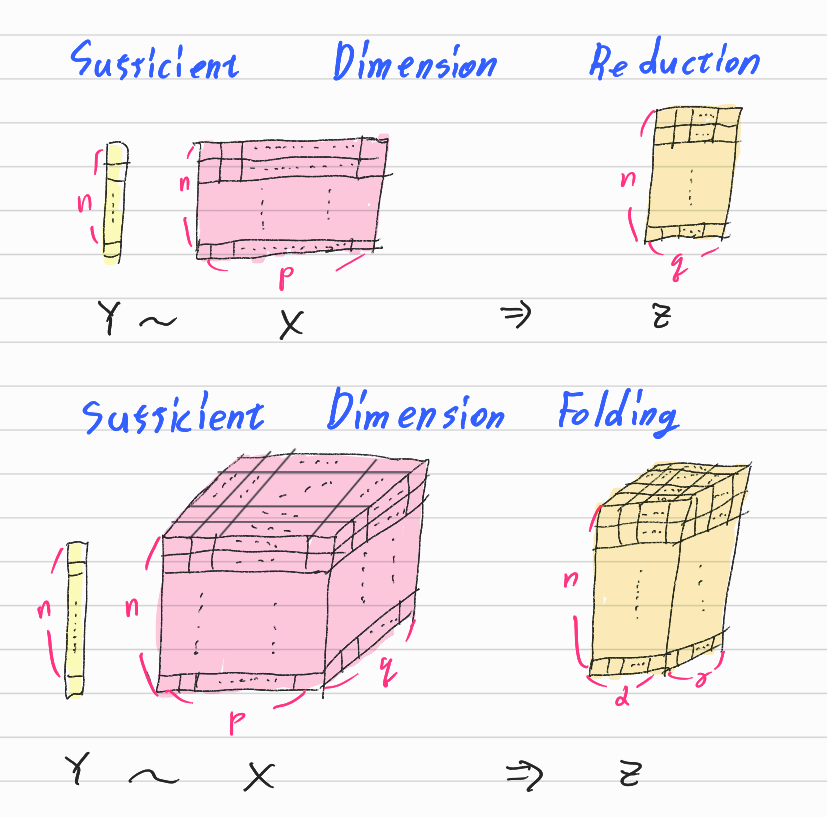 Sufficient Dimension Reduction
n n p n q
Y ~ X ⇒ Z
Sufficient Dimension Folding
n n p q n d r
Y ~ X ⇒ Z